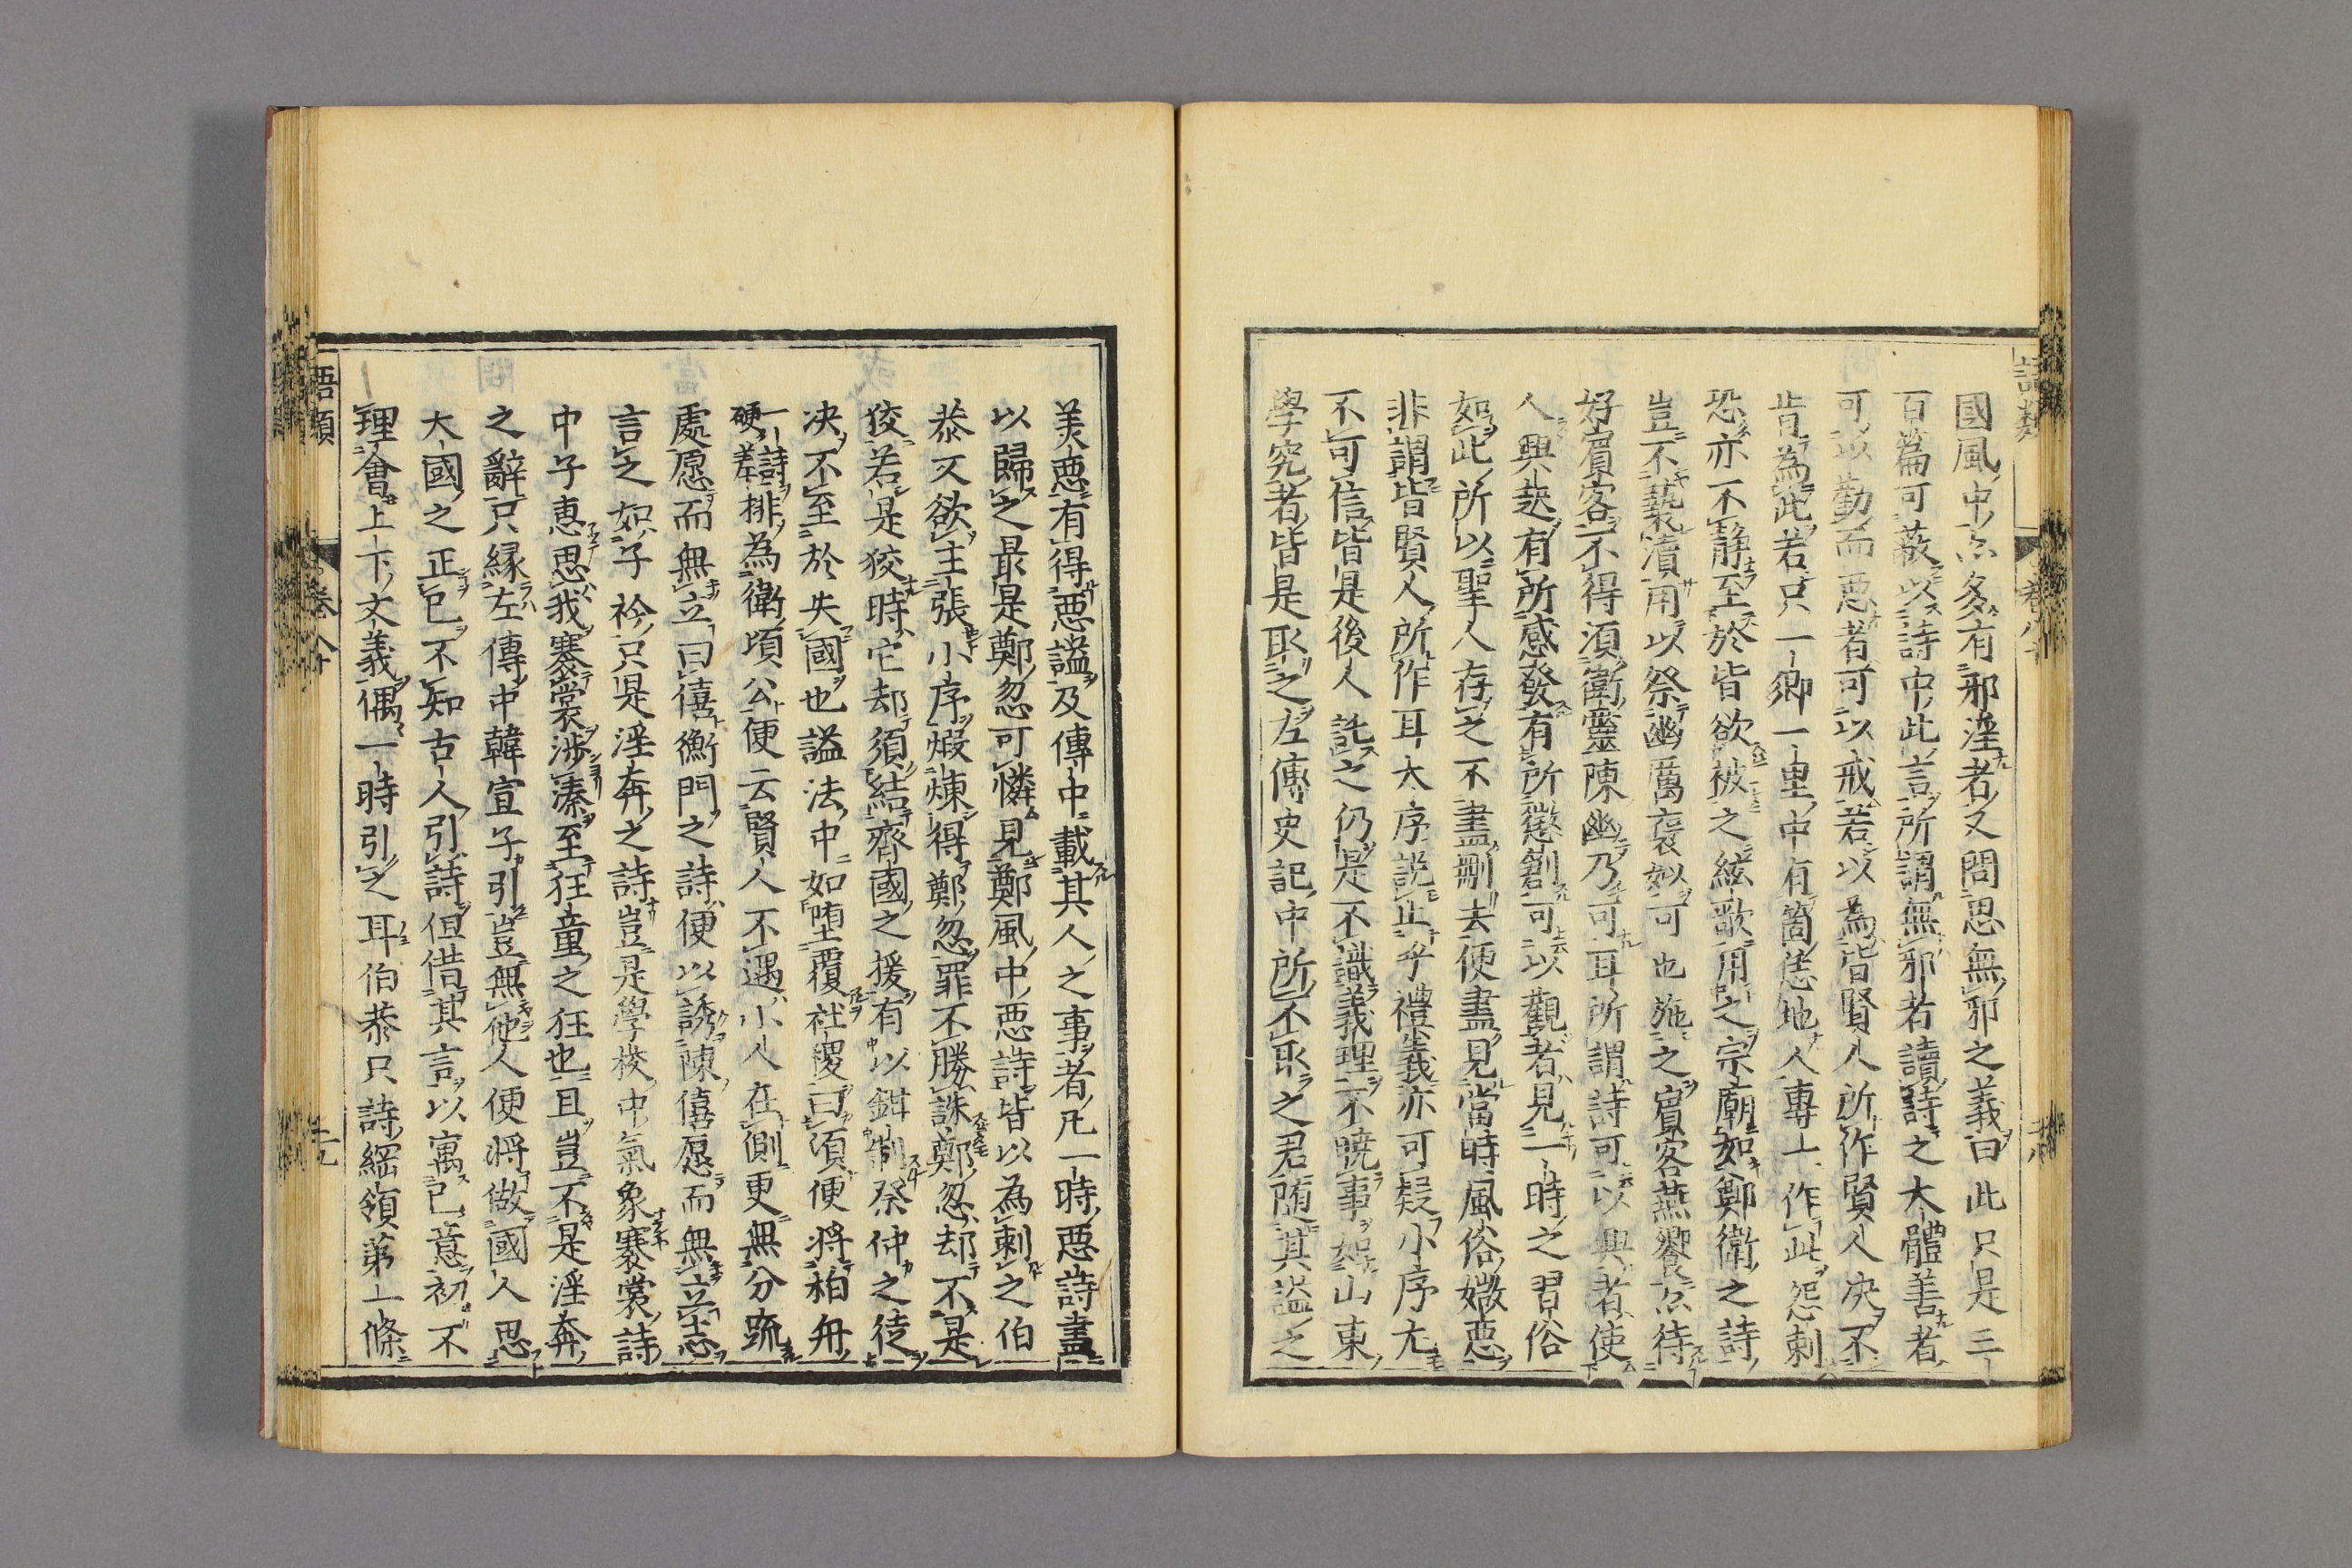 國風中亦多有邪淫者又問思無邪之義曰此只是三
百篇可蔽以詩中此言所謂無邪者讀詩之大體善者
可以勸而惡者可以戒若以為皆賢人所作賢人决不
肯為此若只一鄉一里中有箇恁地人專一作此怨刺
恐亦不靜至於皆欲被之絃歌用之宗廟如鄭衛之詩
豈不褻瀆用以祭幽厲褒姒可也施之賓客燕饗亦待
好賓客不得須衛靈陳幽乃可耳所謂詩可以興者使
人興起有所感發有所懲創可以觀者見一時之習俗
如此所以聖人存之不盡刪去便盡見當時風俗媺惡
非謂皆賢人所作耳大序說止乎禮義亦可疑小序尤
不可信皆是後人託之仍是不識義理不曉事如山東
學究者皆是取之左傳史記中所不取之君隨其謚之
美惡有得惡謚及傳中載其人之事者凡一時惡詩盡
以歸之最是鄭忽可憐見鄭風中惡詩皆以為刺之伯
恭又欲主張小序煅煉得鄭忽罪不勝誅鄭忽却不是
狡若是狡時它却須結齊國之援有以鉗制祭仲之徒
决不至於失國也謚法中如墮覆社稷曰頃便將柏舟
一詩硬差排為衛頃公便云賢人不遇小人在側更無分疏
處愿而無立曰僖衡門之詩便以誘陳僖愿而無立志
言之如子衿只是淫奔之詩豈是學校中氣象褰裳詩
中子惠思我褰裳涉溱至狂童之狂也且豈不是淫奔
之辭只緣左傳中韓宣子引豈無他人便將做國人思
大國之正己不知古人引詩但借其言以寓己意初不
理會上下文義偶一時引之耳伯恭只詩綱領第一條
語類 卷八十 二十九